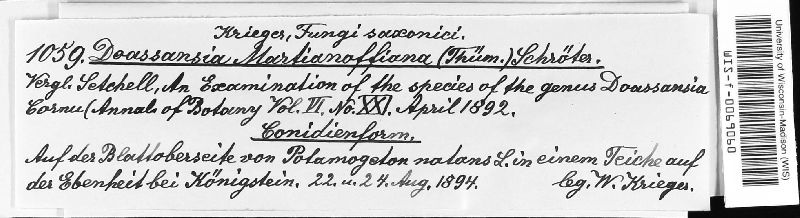 Krieger, Fungi saxonici.
1059. Doassansia Martianoffiana (Thüm.) Schröter.
Vergl. Setchell, An Examination of the species of the genus Doassansia
Cornu (Annals of Botany Vol. VI, No. XXI. April 1892.
Conidienform.
Auf der Blattoberseite von Potamogeton natans L. in einem Teiche auf
der Ebenheit bei Königstein. 22. u. 24. Aug. 1894. leg. W. Krieger.
University of Wisconsin-Madison (WIS)
WIS-f-0069060